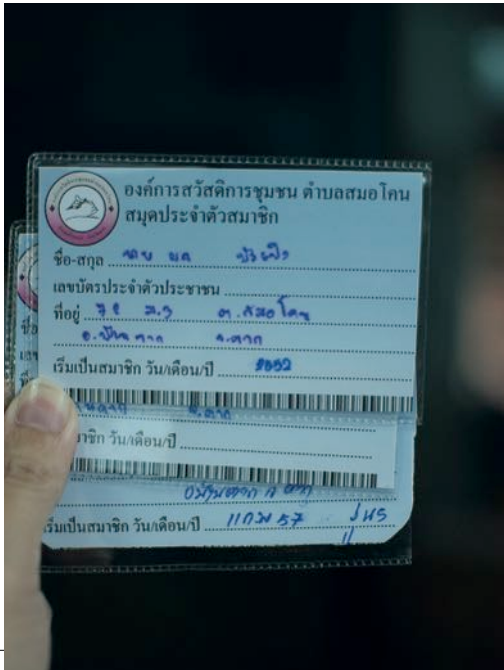 องค์การสวัสดิการชุมชน ตำบลสมอโคน
สมุดประจำตัวสมาชิก
ชื่อ-สกุล นาย
เลขบัตรประจำตัวประชาชน
ที่อยู่ ต.สมอโคน
อ.บ้านตาก จ.ตาก
เริ่มเป็นสมาชิก วัน/เดือน/ปี 2552
จ.ตาก
าชิก วัน/เดือน/ปี
อ.บ้านตาก จ.ตาก
เริ่มเป็นสมาชิก วัน/เดือน/ปี 57